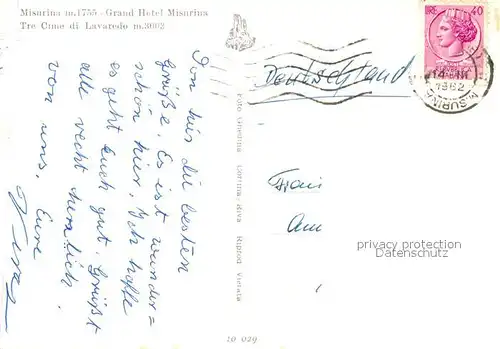 Misurina m.1755 - Grand Hotel Misurina
Tre Cime di Lavaredo m.3002
Von hier die besten
Grüße. Es ist wunder=
schön hier. Ich hoffe
es geht Euch gut. Grüßt
alle recht herzlich
von uns, Eure
Deutschland
Frau
Am
Foto Ghedina Cortina
Riprod Vietata
40
14
1962
MISURINA
privacy protection
Datenschutz
10 029